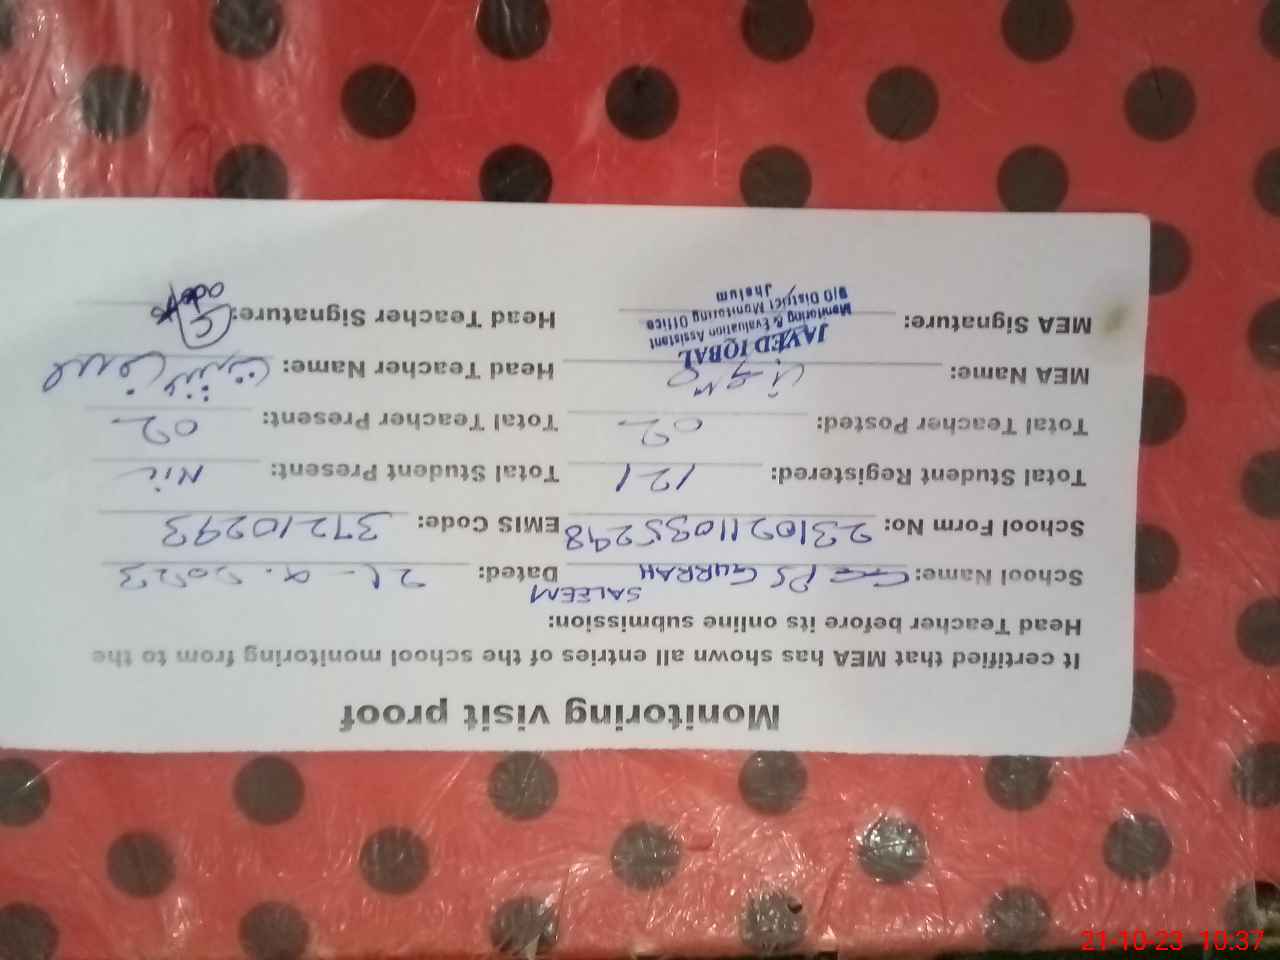 Monitoring visit proof
It certified that MEA has shown all entries of the school monitoring from to the
Head Teacher before its online submission:
School Name: PS GURRAH SALEEM Dated:
School Form No: 23109211035298 EMIS Code: 37210293
Total Student Registered: 121 Total Student Present: Nil
Total Teacher Posted: 02 Total Teacher Present: 02
MEA Name: Head Teacher Name:
MEA Signature: Head Teacher Signature:
JAVED IQBAL
Monitoring & Evaluation Assistant
O/O District Monitoring Office
Jhelum
21-10-23 10:37